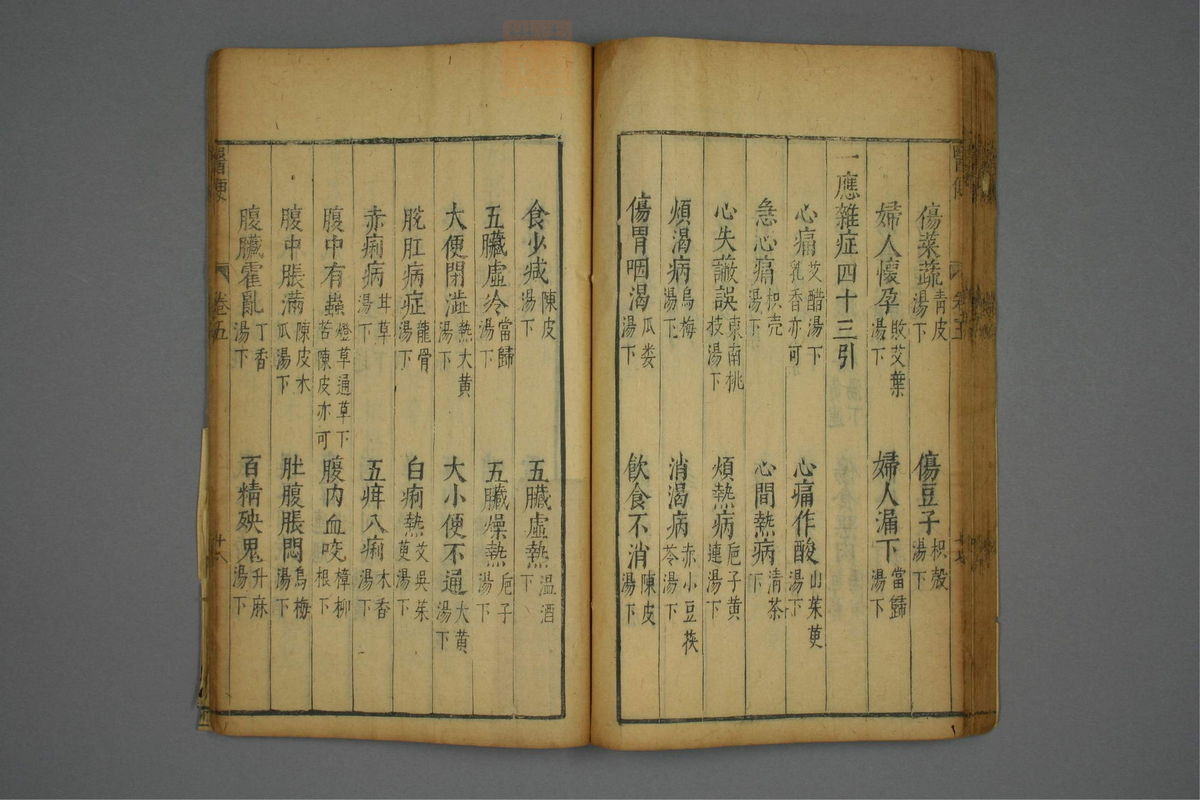 傷菜蔬青皮湯下 傷豆子枳殼湯下
婦人懷孕敗艾葉湯下 婦人漏下當歸湯下
一應雜症四十三引
心痛艾醋湯下乳香亦可 心痛作酸山茱萸湯下
急心痛枳壳湯下 心間熱病清茶下
心失謬誤東南桃枝湯下 煩熱病梔子黄連湯下
煩渴病烏梅湯下 消渴病赤小豆茯苓湯下
傷胃咽渴瓜蔞湯下 飲食不消陳皮湯下
食少減陳皮湯下 五臟虛熱温酒下
五臟虛冷當歸湯下 五臟燥熱梔子湯下
大便閉澁熱大黄湯下 大小便不通大黄湯下
脫肛病症龍骨湯下 白痢熱艾吳茱萸湯下
赤痢病甘草湯下 五痺八痢木香湯下
腹中有蟲燈草通草下苦陳皮亦可 腹内血咬樟柳根下
腹中脹滿陳皮木瓜湯下 肚腹脹悶烏梅湯下
腹臟霍亂丁香湯下 百精殃鬼升麻湯下
醫便 卷五 廿八